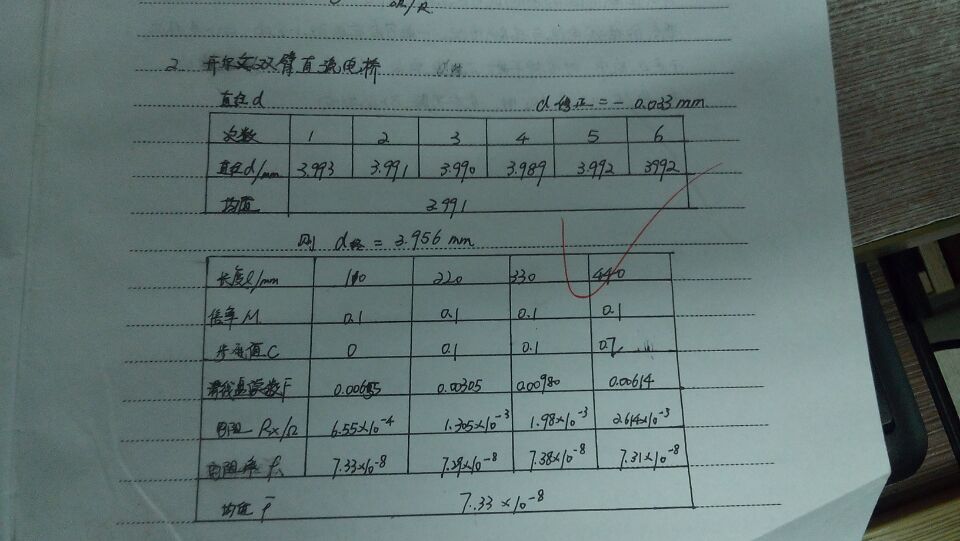 2 开尔文双臂直流电桥
直径d d修正=-0.033mm
次数 1 2 3 4 5 6
直径d/mm 3.993 3.991 3.990 3.989 3.992 3992
均值 3.991
则 d终 = 3.956 mm
长度l/mm 110 220 330 440
倍率M 0.1 0.1 0.1 0.1
步进值C 0 0.1 0.1
滑线盘读数F 0.00305 0.00980 0.00614
电阻 Rx/Ω 6.55×10-4 1.305×10-3 1.98×10-3 2.614×10-3
电阻率 7.33×10-8 7.29×10-8 7.38×10-8 7.31×10-8
均值 ρ̄ 7.33×10-8